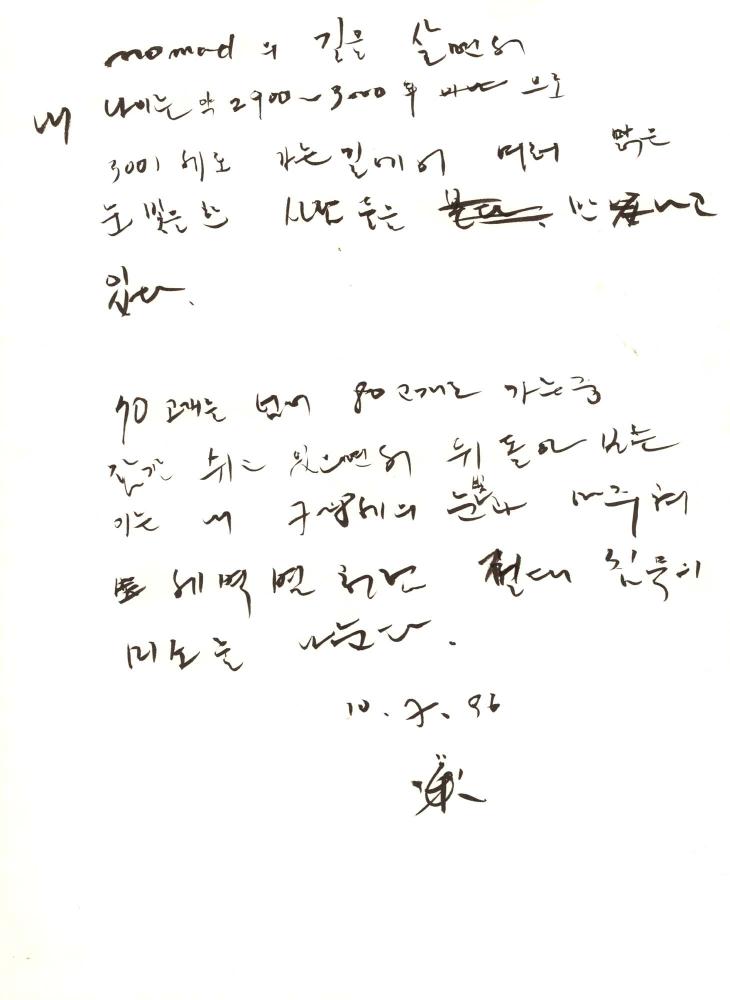 nomad의 길을 살면서
내 나이는 약 2900~3000
3001 세로 가는 길에서 여러 맑은
눈빛을 한 사람들을 만나고
있다.
70 고개를 넘어 80 고개로 가는
잠깐 쉬고 있으면서 뒤돌아 보는
이는 내 눈빛과 마주쳐
새벽별 절대 침묵의
미소를 나눈다.
10. 7. 96